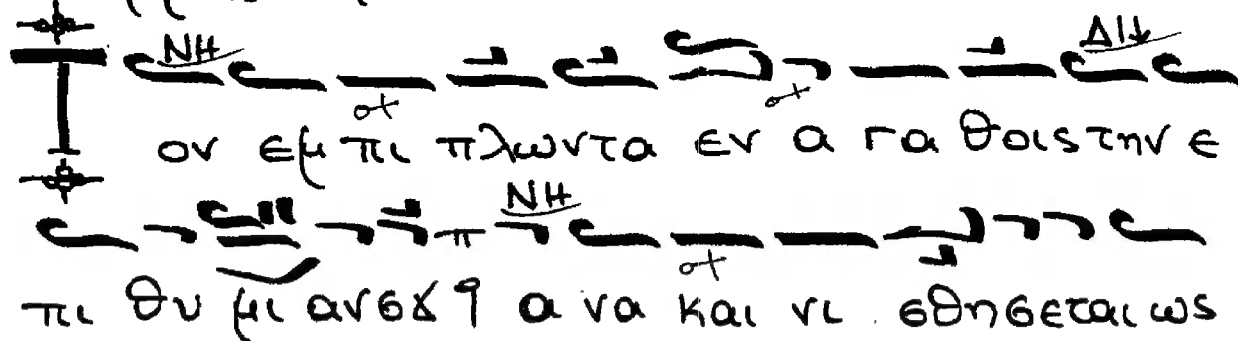 ΝΗ ΔΙ
Τον εμ πι πλωντα εν α γα θοις την ε
ΝΗ
πι θυ μι αν σȣ α να και νι σθησεται ως